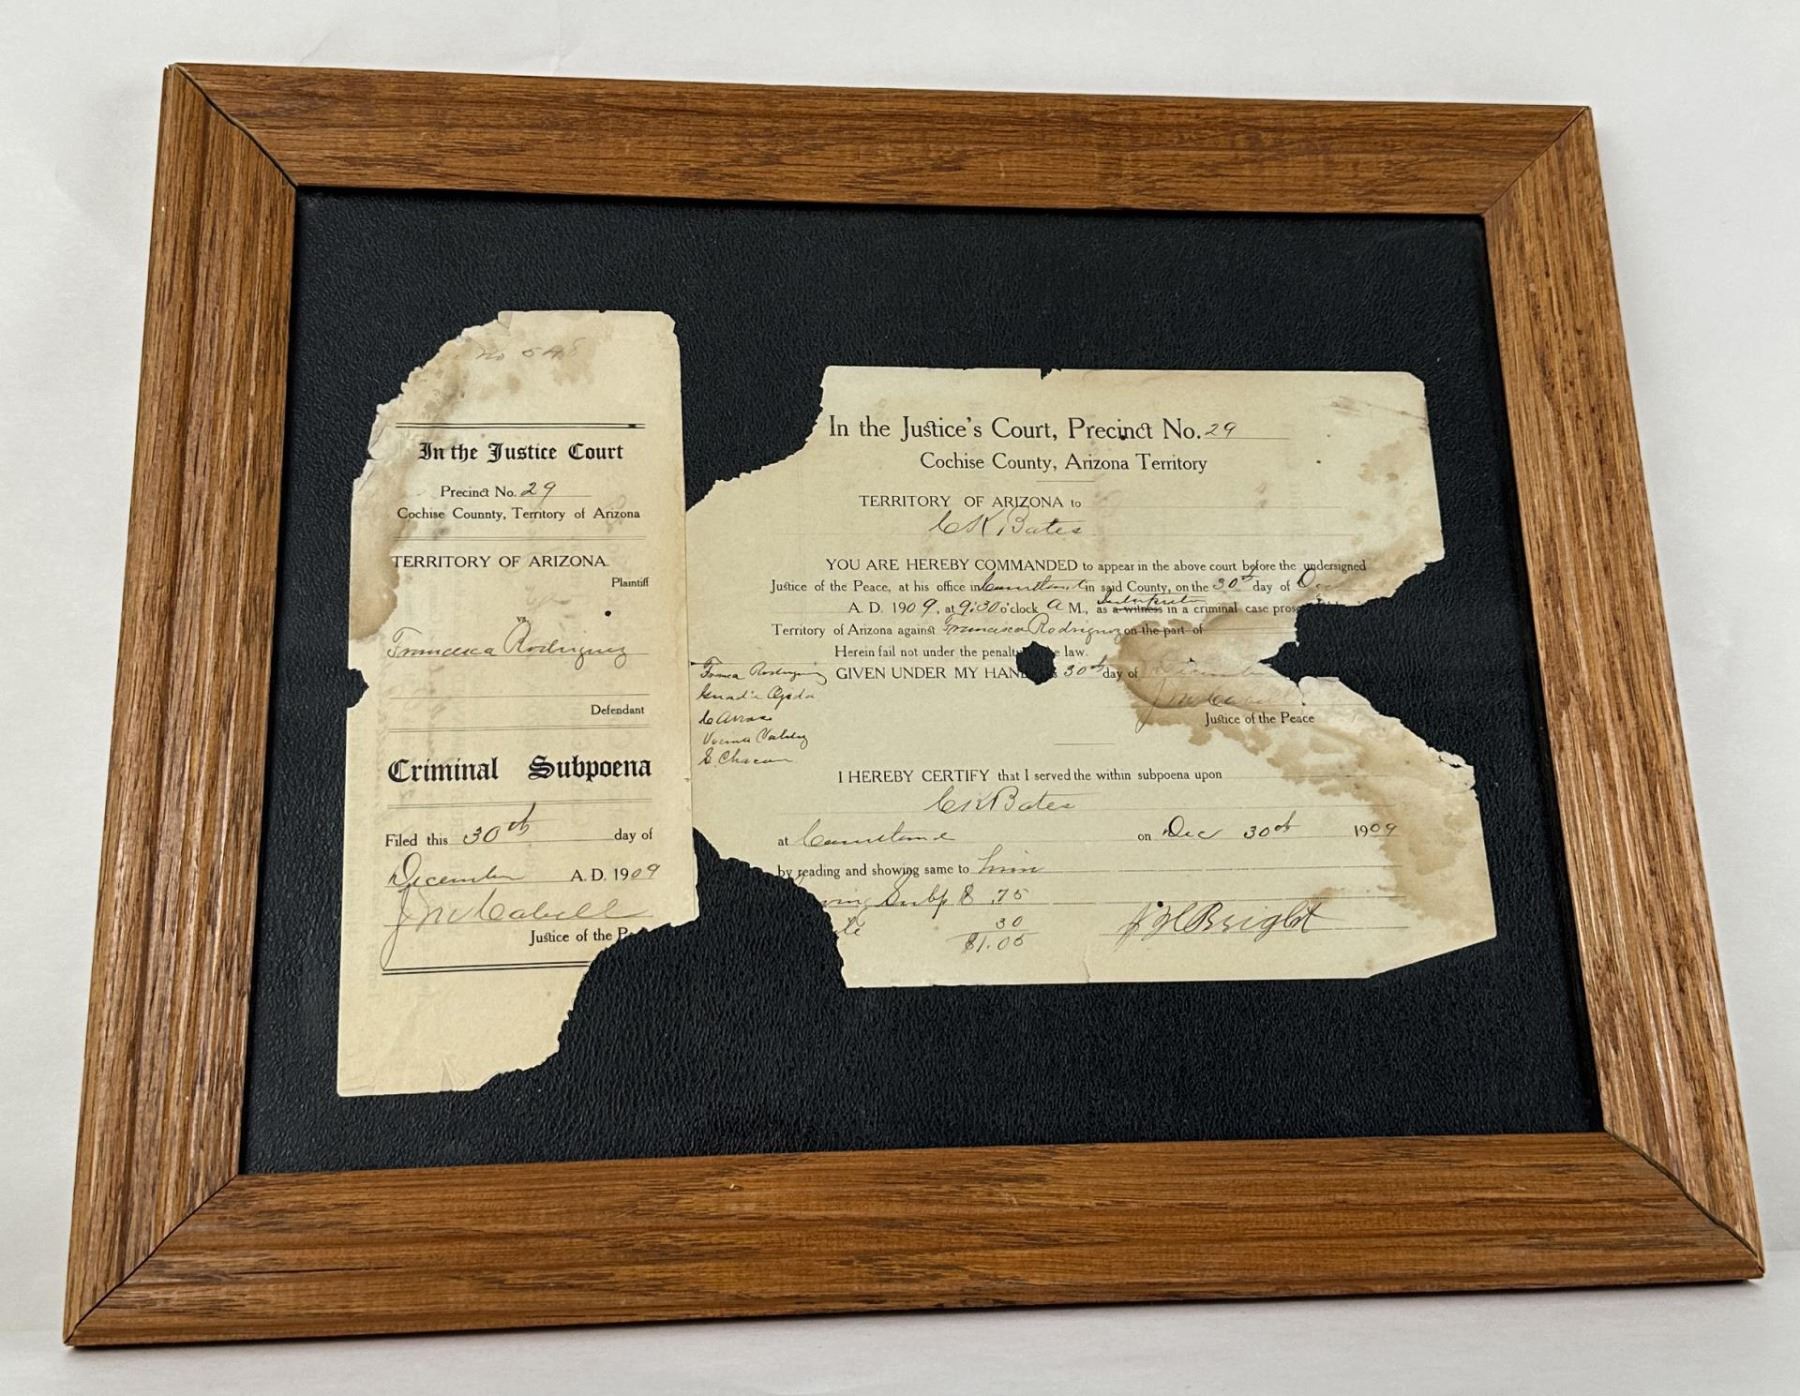 No 548
In the Justice Court
Precinct No. 29
Cochise Counnty, Territory of Arizona
TERRITORY OF ARIZONA
Plaintiff
vs.
Francisca Rodriguez
Defendant
Criminal Subpoena
Filed this 30th day of
December A. D. 1909
J M Cabell
Justice of the
In the Justice's Court, Precinct No. 29
Cochise County, Arizona Territory
TERRITORY OF ARIZONA to
C K Bates
YOU ARE HEREBY COMMANDED to appear in the above court before the undersigned
Justice of the Peace, at his office in Courtland in said County, on the 30th day of
A. D. 1909, at 9:30 o'clock A M., as a witness Interpreter in a criminal case
Territory of Arizona against Francisca Rodriguez on the part of
Herein fail not under the penalt e law.
GIVEN UNDER MY HAN 30th day of December
J M Cabell
Justice of the Peace
Rodriguez
Ojeda
C Arros
Valdez
E. Chacon
I HEREBY CERTIFY that I served the within subpoena upon
C K Bates
at Courtland on Dec 30th 1909
by reading and showing same to him
ving Subp $ .75
30
$1.05
Bright